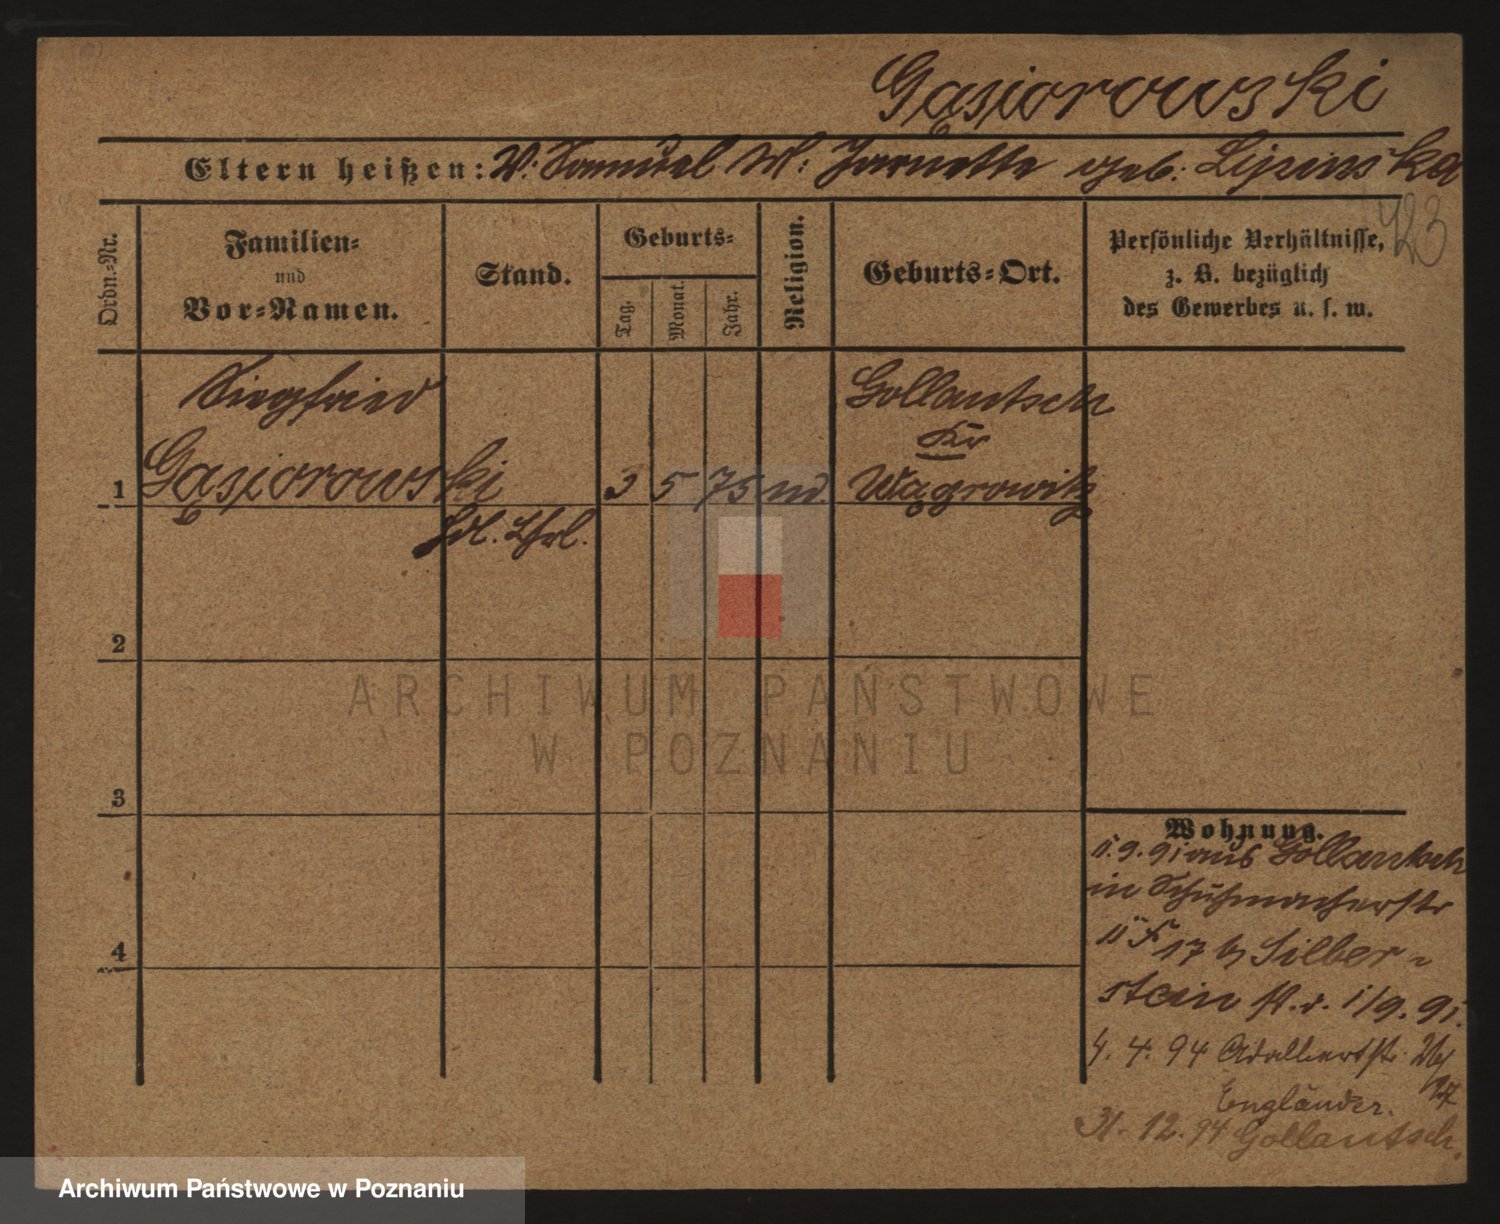 Gąsiorowski
Eltern heißen: V. Samuel M: Jeanette geb: Lipinska
423
Ordn.-Nr.
Familien-
und
Vor-Namen.
Stand.
Geburts-
Tag.
Monat.
Jahr.
Religion.
Geburts-Ort.
Persönliche Verhältnisse,
z. B. bezüglich
des Gewerbes u. s. w.
Siegfried
Gollantsch
Kr
1 Gąsiorowski 3 5 75 m. Wągrowitz
Hdl. Lhrl.
2
3
4
Wohnung.
11.9.91 aus Gollantsch
in Schuhmacherstr
17 b Silber-
stein 1/9.91.
4.4.94 Adalbertstr.
Engländer.
31.12.94 Gollantsch.
ARCHIWUM PAŃSTWOWE
W POZNANIU
Archiwum Państwowe w Poznaniu